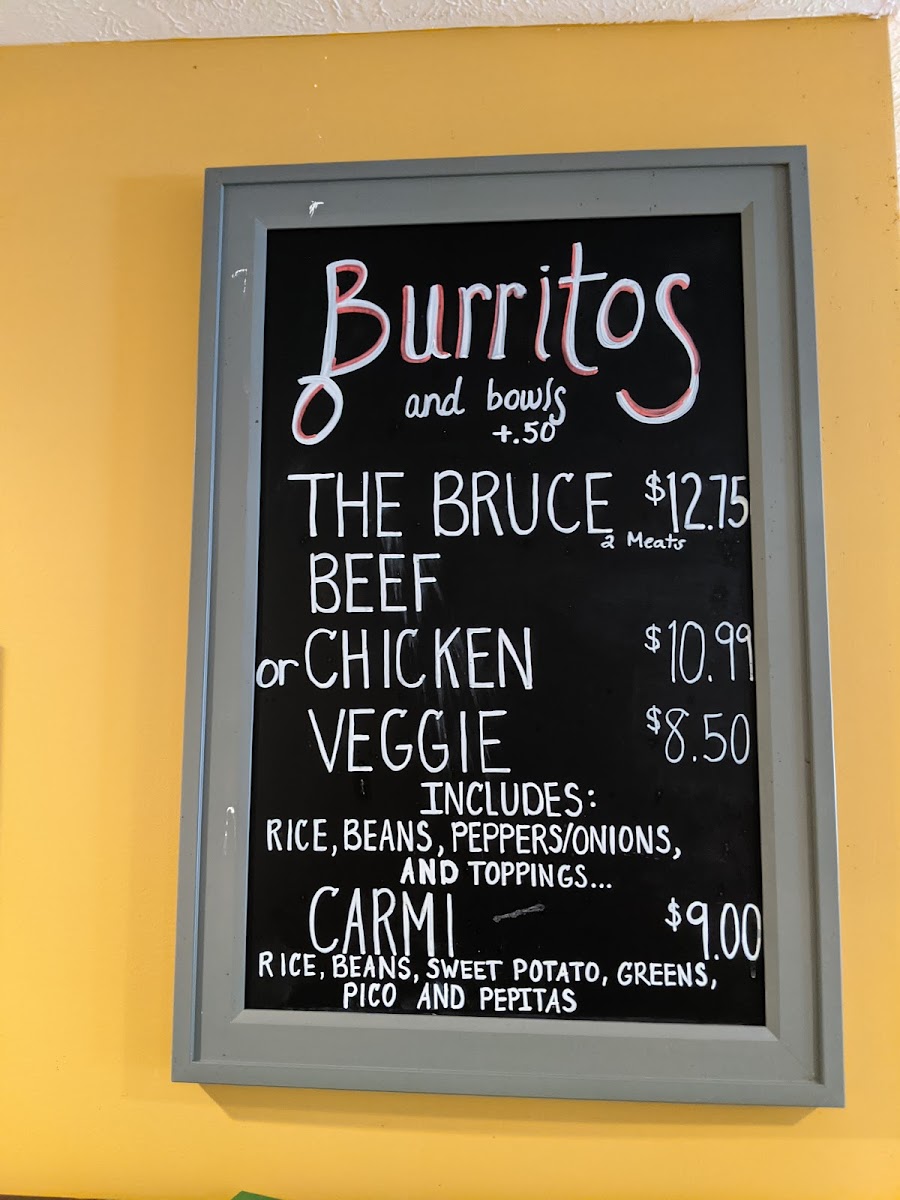 Burritos
and bowls
+.50
THE BRUCE $12.75
2 Meats
BEEF
or CHICKEN $10.99
VEGGIE $8.50
INCLUDES:
RICE, BEANS, PEPPERS/ONIONS,
AND TOPPINGS...
CARMI $9.00
RICE, BEANS, SWEET POTATO, GREENS,
PICO AND PEPITAS